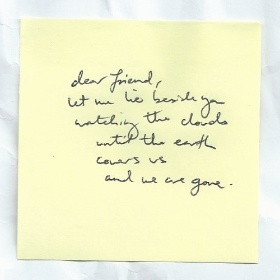 dear friend,
let me lie beside you
watching the clouds
until the earth
covers us
and we are gone.